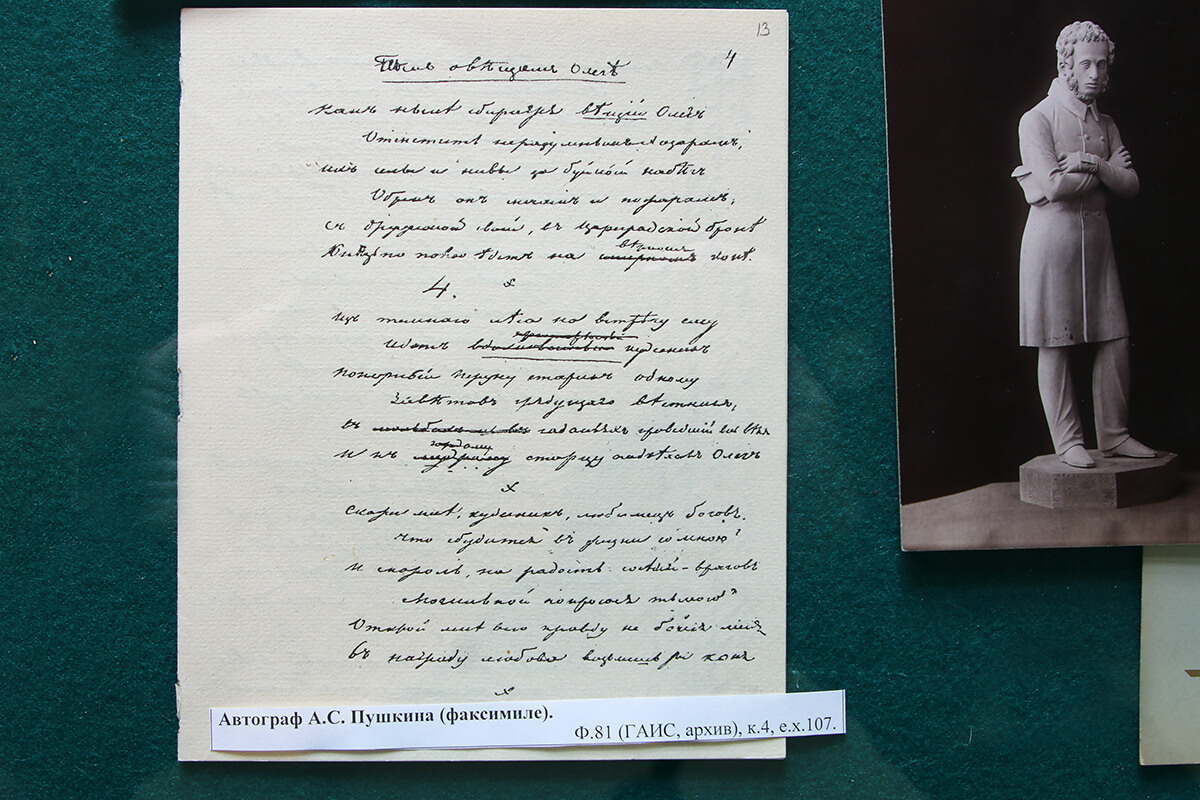 13
4
Пѣснь о вѣщемъ Олегѣ
Какъ нынѣ сбирается вѣщій Олегъ
Отмстить неразумнымъ Хозарамъ;
Ихъ селы и нивы за буйной набѣгъ
Обрекъ онъ мечамъ и пожарамъ;
Съ дружиной своей, въ Цареградской бронѣ
Князь по полю ѣдетъ на смирномъ конѣ.
4.
Изъ темнаго лѣса на встрѣчу ему
Идетъ вдохновенный кудесникъ
Покорный Перуну старикъ одному
Завѣтовъ грядущаго вѣстникъ,
Въ гаданьяхъ проведшій весь вѣкъ
гордому
И къ мудрому старцу подъѣхалъ Олегъ
Скажи мнѣ, кудесникъ, любимецъ боговъ,
Что сбудется въ жизни со мною?
И скороль, на радость сосѣдей-враговъ
Могильной покроюсь землею?
Открой мнѣ всю правду не бойся меня
Въ награду любова возьмешь ты коня
Автограф А.С. Пушкина (факсимиле).
Ф.81 (ГАИС, архив), к.4, е.х.107.